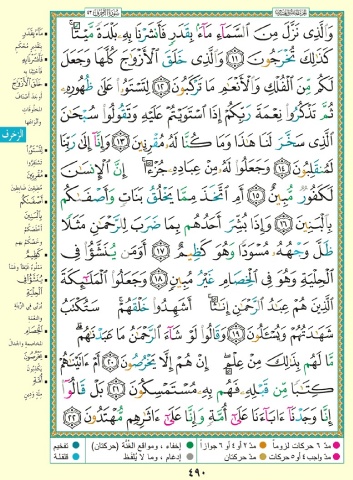 سُورَةُ الزُّخْرُفِ ٤٣
وَالَّذِي نَزَّلَ مِنَ السَّمَاءِ مَاءً بِقَدَرٍ فَأَنشَرْنَا بِهِ بَلْدَةً مَّيْتًا
كَذَٰلِكَ تُخْرَجُونَ ١١ وَالَّذِي خَلَقَ الْأَزْوَاجَ كُلَّهَا وَجَعَلَ
لَكُم مِّنَ الْفُلْكِ وَالْأَنْعَامِ مَا تَرْكَبُونَ ١٢ لِتَسْتَوُوا عَلَىٰ ظُهُورِهِ
ثُمَّ تَذْكُرُوا نِعْمَةَ رَبِّكُمْ إِذَا اسْتَوَيْتُمْ عَلَيْهِ وَتَقُولُوا سُبْحَانَ
الَّذِي سَخَّرَ لَنَا هَٰذَا وَمَا كُنَّا لَهُ مُقْرِنِينَ ١٣ وَإِنَّا إِلَىٰ رَبِّنَا
لَمُنقَلِبُونَ ١٤ وَجَعَلُوا لَهُ مِنْ عِبَادِهِ جُزْءًا إِنَّ الْإِنسَانَ
لَكَفُورٌ مُّبِينٌ ١٥ أَمِ اتَّخَذَ مِمَّا يَخْلُقُ بَنَاتٍ وَأَصْفَاكُم
بِالْبَنِينَ ١٦ وَإِذَا بُشِّرَ أَحَدُهُم بِمَا ضَرَبَ لِلرَّحْمَٰنِ مَثَلًا
ظَلَّ وَجْهُهُ مُسْوَدًّا وَهُوَ كَظِيمٌ ١٧ أَوَمَن يُنَشَّأُ فِي
الْحِلْيَةِ وَهُوَ فِي الْخِصَامِ غَيْرُ مُبِينٍ ١٨ وَجَعَلُوا الْمَلَائِكَةَ
الَّذِينَ هُمْ عِبَادُ الرَّحْمَٰنِ إِنَاثًا أَشَهِدُوا خَلْقَهُمْ سَتُكْتَبُ
شَهَادَتُهُمْ وَيُسْأَلُونَ ١٩ وَقَالُوا لَوْ شَاءَ الرَّحْمَٰنُ مَا عَبَدْنَاهُم
مَّا لَهُم بِذَٰلِكَ مِنْ عِلْمٍ إِنْ هُمْ إِلَّا يَخْرُصُونَ ٢٠ أَمْ آتَيْنَاهُمْ
كِتَابًا مِّن قَبْلِهِ فَهُم بِهِ مُسْتَمْسِكُونَ ٢١ بَلْ قَالُوا
إِنَّا وَجَدْنَا آبَاءَنَا عَلَىٰ أُمَّةٍ وَإِنَّا عَلَىٰ آثَارِهِم مُّهْتَدُونَ ٢٢
مَاءً بِقَدَرٍ
فَأَنشَرْنَا بِهِ
خَلَقَ الْأَزْوَاجَ
الزخرف
لِتَسْتَوُوا
مُقْرِنِينَ
أَصْفَاكُم
بِالْبَنِينَ
كَظِيمٌ
يُنَشَّأُ فِي
الْحِلْيَةِ
الْخِصَامِ
يَخْرُصُونَ
أُمَّةٍ
مدّ ٦ حركات لزوماً مدّ ٢ أو ٤ أو ٦ جوازاً إخفاء، ومواقع الغُنَّة (حركتان) تفخيم
مدّ واجب ٤ أو ٥ حركات مدّ حركتان إدغام، وما لا يُلفظ قلقلة
٤٩٠